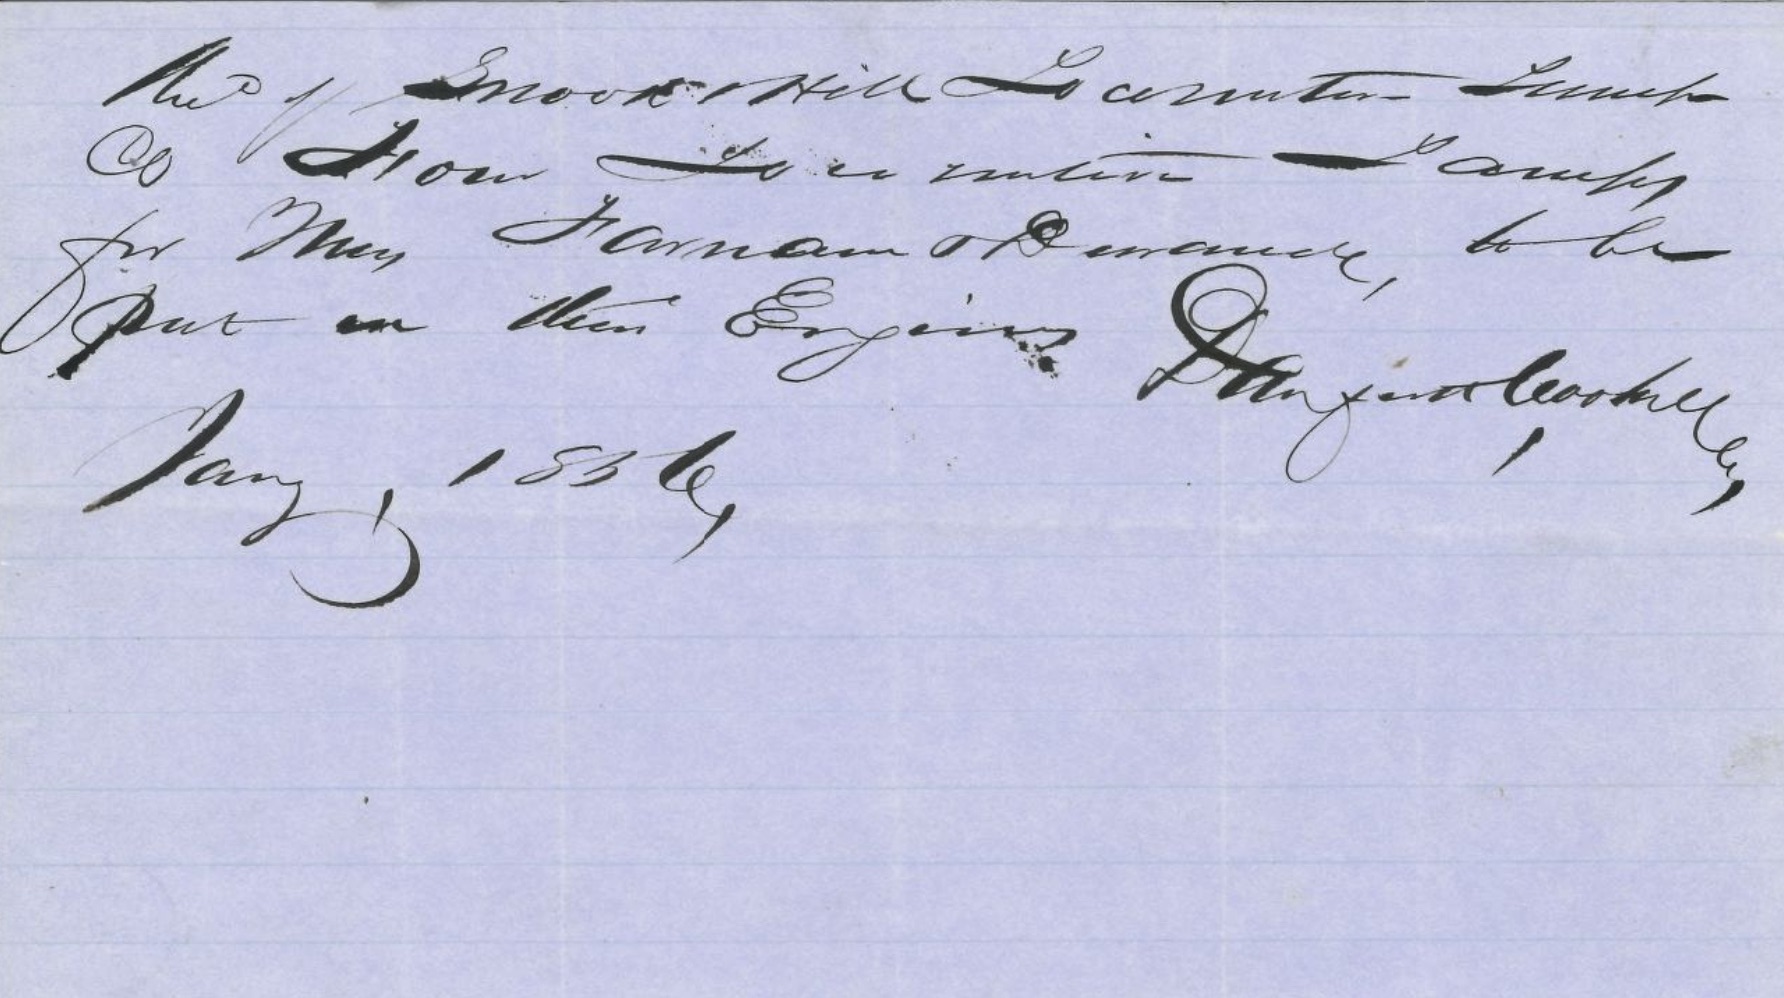 Recd of Snook & Hill Locomotive Lamp
Co Four Locomotive Lamps
for Mess Farnam & Durand, to be
put on their Engines
Danforth Cooke & Co,
Jany, 1856,